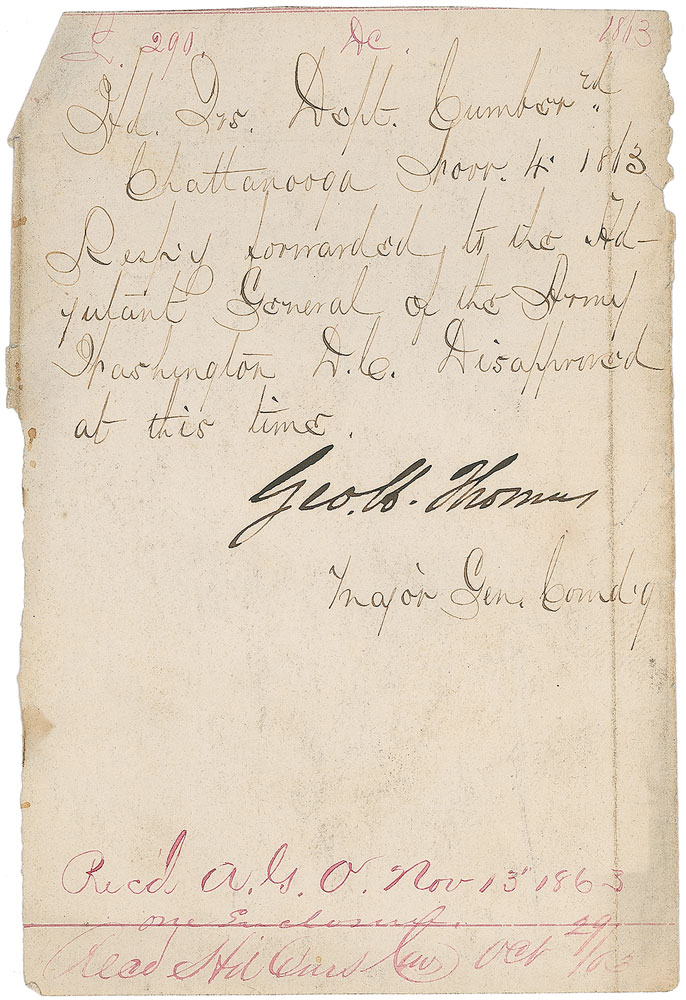 290. D.C. 1863
Hd. Qrs. Dept. Cumberd
Chattanooga Novr. 4. 1863
Resp'y forwarded to the Ad-
jutant General of the Army
Washington D.C. Disapproved
at this time.
Geo. H. Thomas
Major Gen. Comd'g
Rec'd A. G. O. Nov 13" 1863
one Enclosure.
Recd Hd Qurs Cav Oct 29/63